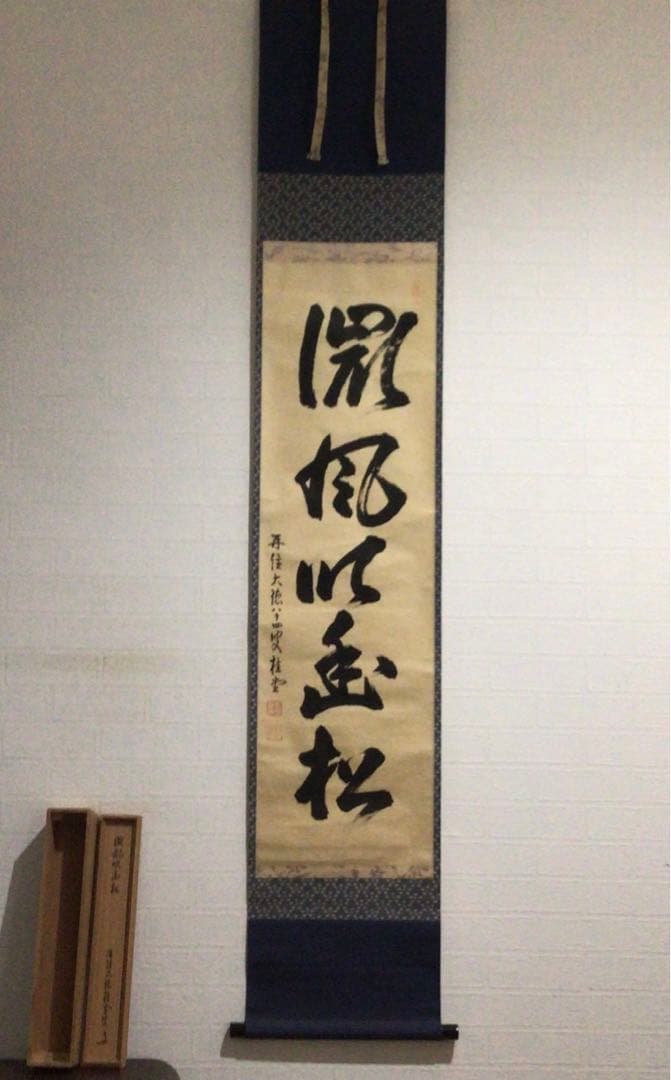 微風吹幽松
再住大徳八十四叟桂堂
微風吹幽松